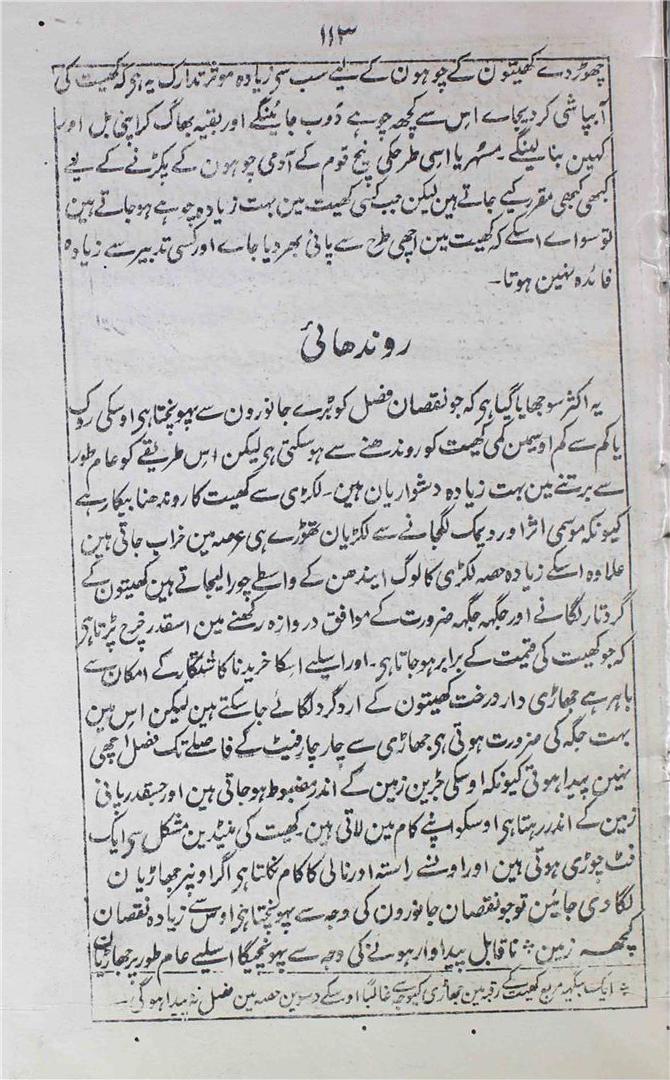 ۱۱۳
چھوڑدے کھیتون کے چوہون کے لیے سب سی زیادہ موثر تدارک یہ ہی کہ کھیت کی
آبپاشی کردیجاے اس سے کچھ چوہے ڈوب جائینگے اور بقیہ بھاگ کر اپنی بل اور
کہین بنا لینگے۔ مسہر یا اسی طرحکی نیچ قوم کے آدمی چوہون کے پکڑنے کے لیے
کبھی کبھی مقرر کیے جاتے ہین لیکن جب کسی کھیت مین بہت زیادہ چوہے ہوجاتے ہین
تو سواے اسکے کہ کھیت مین اچھی طرح سے پانی بھر دیا جاے اور کسی تدبیر سے زیادہ
فائدہ نہین ہوتا۔
روندھائی
یہ اکثر سوجھایا گیا ہی کہ جو نقصان فصل کو بڑے جانورون سے پہونچتا ہی اوسکی روک
یا کم سے کم اوسمین کمی کھیت کو روندھنے سے ہوسکتی ہی لیکن اس طریقے کو عام طور
سے برتنے مین بہت زیادہ دشواریان ہین۔ لکڑی سے کھیت کا روندھنا بیکار ہے
کیونکہ موسمی اثر اور دیمک لگجانے سے لکڑیان تھوڑے ہی عرصہ مین خراب جاتی ہین
علاوہ اسکے زیادہ حصہ لکڑی کا لوگ ایندھن کے واسطے چورا لیجاتے ہین کھیتون کے
گرد تار لگانے اور جگہہ جگہہ ضرورت کے موافق دروازہ رکھنے مین اسقدر خرچ پڑتا ہی
کہ جو کھیت کی قیمت کے برابر ہوجاتا ہی۔ اور اسلیے اسکا خریدنا کاشتکار کے امکان سے
باہر ہے جھاڑی دار درخت کھیتون کے ارد گرد لگائے جاسکتے ہین لیکن اس مین
بہت جگہ کی ضرورت ہوتی ہی جھاڑی سے چار چار فیٹ کے فاصلے تک فصل اچھی
نہین پیدا ہوتی کیونکہ اوسکی جڑین زمین کے اندر مضبوط ہوجاتی ہین اور جسقدر پانی
زمین کے اندر رہتا ہی اوسکو اپنے کام مین لاتی ہین۔ کھیت کی مینڈین مشکل سی ایک
فٹ چوڑی ہوتی ہین اور اونسے راستہ اور نالی کا کام نکلتا ہی اگر اونپر جھاڑیان
لگا دی جائین تو جو نقصان جانورون کی وجہ سے پہونچتا ہی اوس سے زیادہ نقصان
کچھہ زمین ٭ ناقابل پیداوار ہونے کی وجہ سے پہونچیگا اسلیے عام طور پر جھاڑیان
٭ ایک بیگہہ مربع کھیت کے رقبہ مین جھاڑی کیوجہ سے غالباً اوسکے دسوین حصہ مین فصل نہ پیدا ہوگی۔